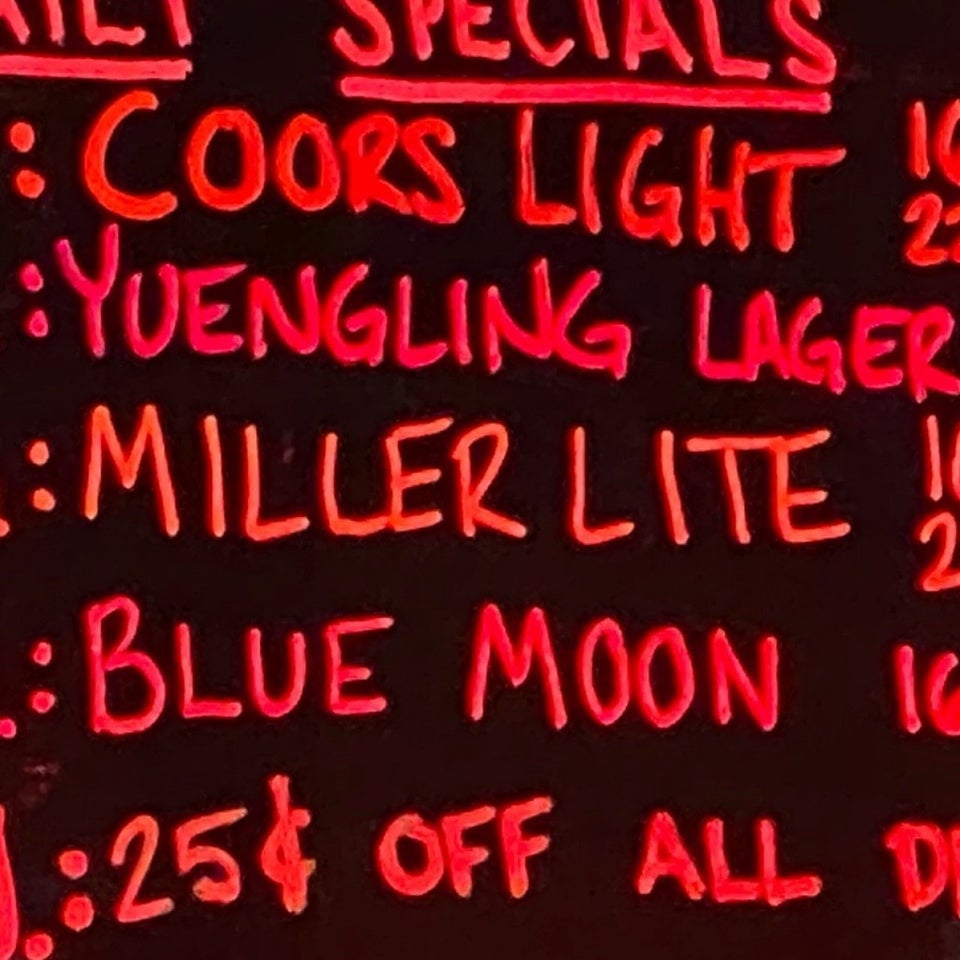 SPECIALS
: COORS LIGHT
: YUENGLING LAGER
: MILLER LITE
: BLUE MOON
.: 25¢ OFF ALL